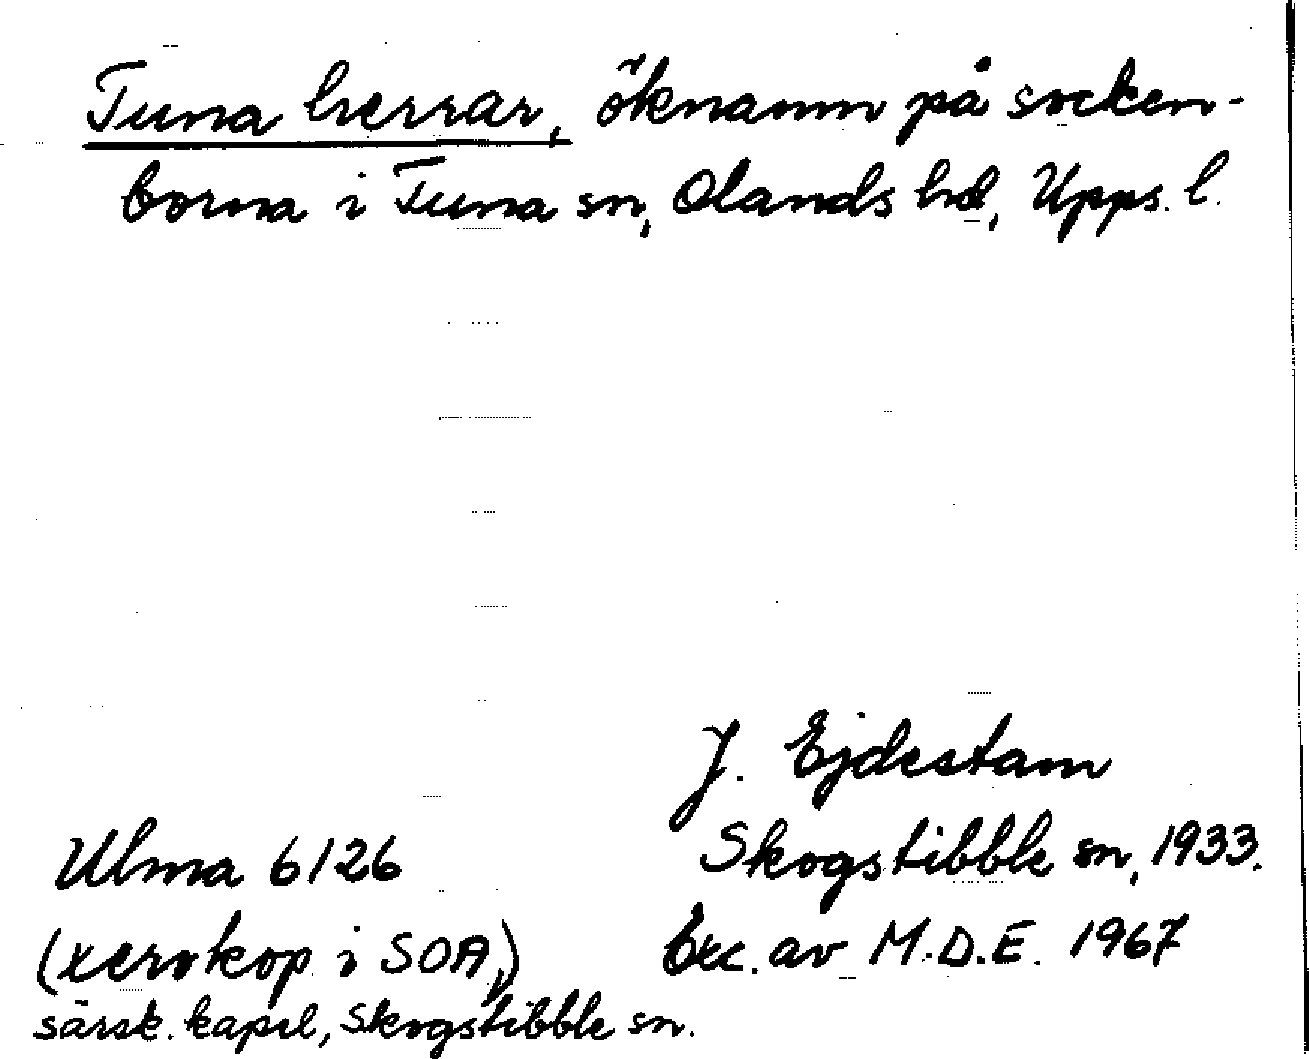 Tuna herrar, öknamn på socken-
borna i Tuna sn, Olands hd, Upps. l.
J. Ejdestam
Skogstibble sn, 1933.
Exc. av M.D.E. 1967
Ulma 6126
(xerokop i SOA,)
särsk. kapsl, Skogstibble sn.